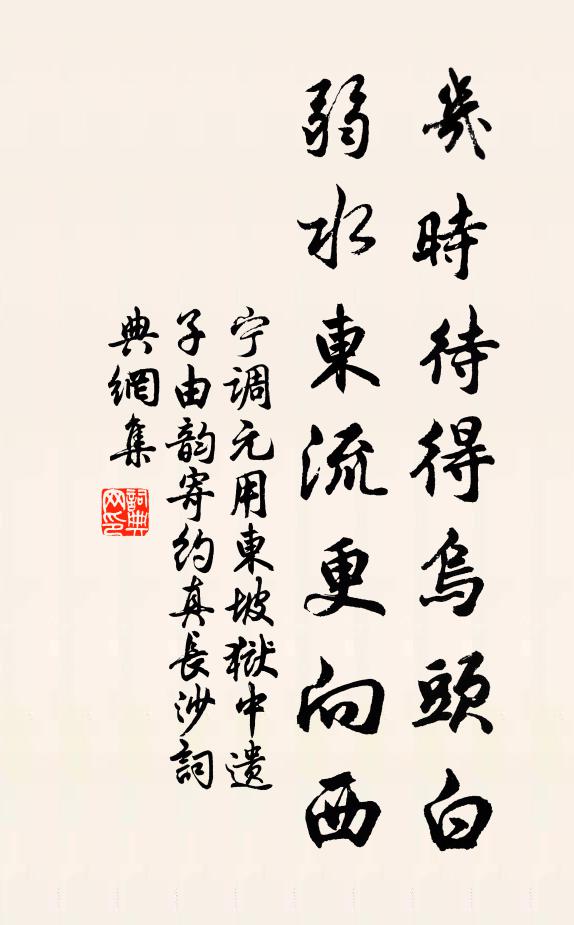 幾時待得烏頭白
弱水東流更向西
宁調元用東坡獄中遺
子由韵寄約真長沙詞
典網集
詞典
网印